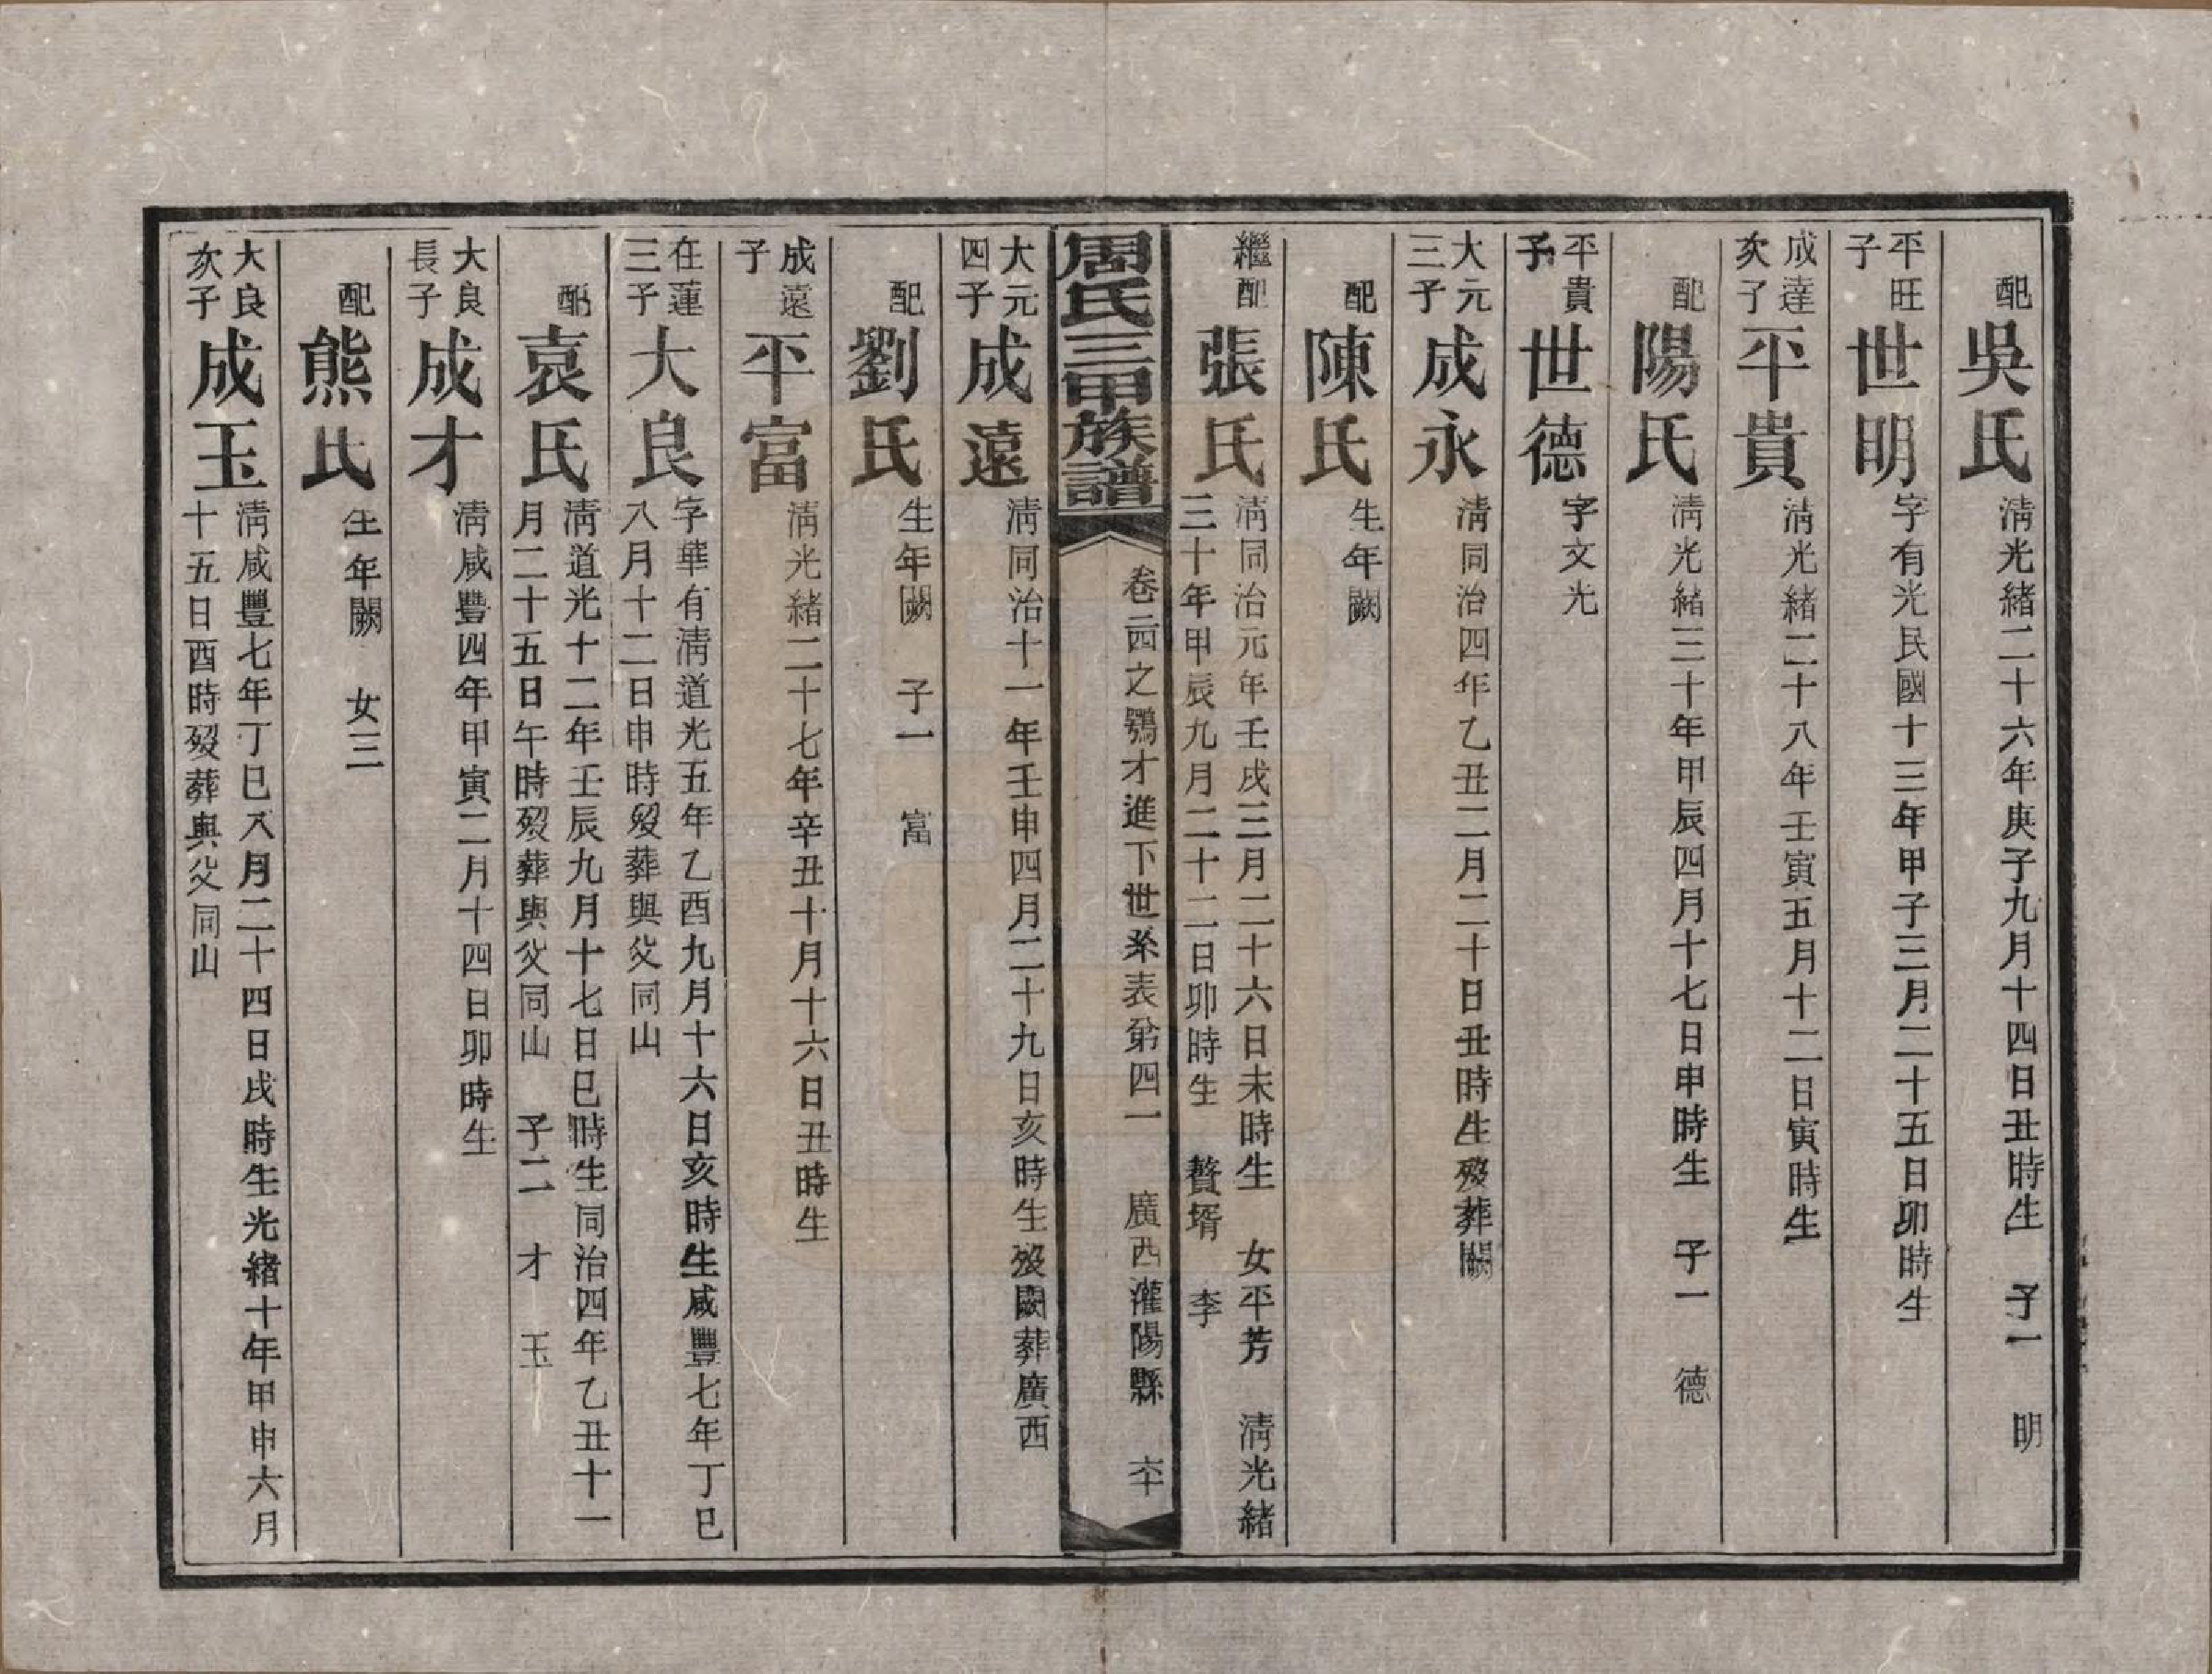 配吳氏 清光緒二十六年庚子九月十四日丑時生 子一 明
平旺子世明 字有光民國十三年甲子三月二十五日卯時生
成達次子平貴 清光緒二十八年壬寅五月十二日寅時生
配陽氏 清光緒三十年甲辰四月十七日申時生 子一 德
平貴子世德 字文光
大元三子成永 清同治四年乙丑二月二十日丑時生歿葬闕
配陳氏 生年闕
繼配張氏 清同治元年壬戌三月二十六日未時生 女平芳 清光緒
三十年甲辰九月二十二日卯時生 贅壻 李
周氏三甲族譜 卷二 四之鶚才進下世系表第四一 廣西灌陽縣
大元四子成遠 清同治十一年壬申四月二十九日亥時生歿闕葬廣西
配劉氏 生年闕 子一 富
成遠子平富 清光緒二十七年辛丑十月十六日丑時生
在蓮三子大良 字華有清道光五年乙酉九月十六日亥時生咸豐七年丁巳
八月十二日申時歿葬與父同山
配袁氏 清道光十二年壬辰九月十七日巳時生同治四年乙丑十一
月二十五日午時歿葬與父同山 子二 才 玉
大良長子成才 清咸豐四年甲寅二月十四日卯時生
配熊氏 生年闕 女三
大良次子成玉 清咸豐七年丁巳八月二十四日戌時生光緒十年甲申六月
十五日酉時歿葬與父同山